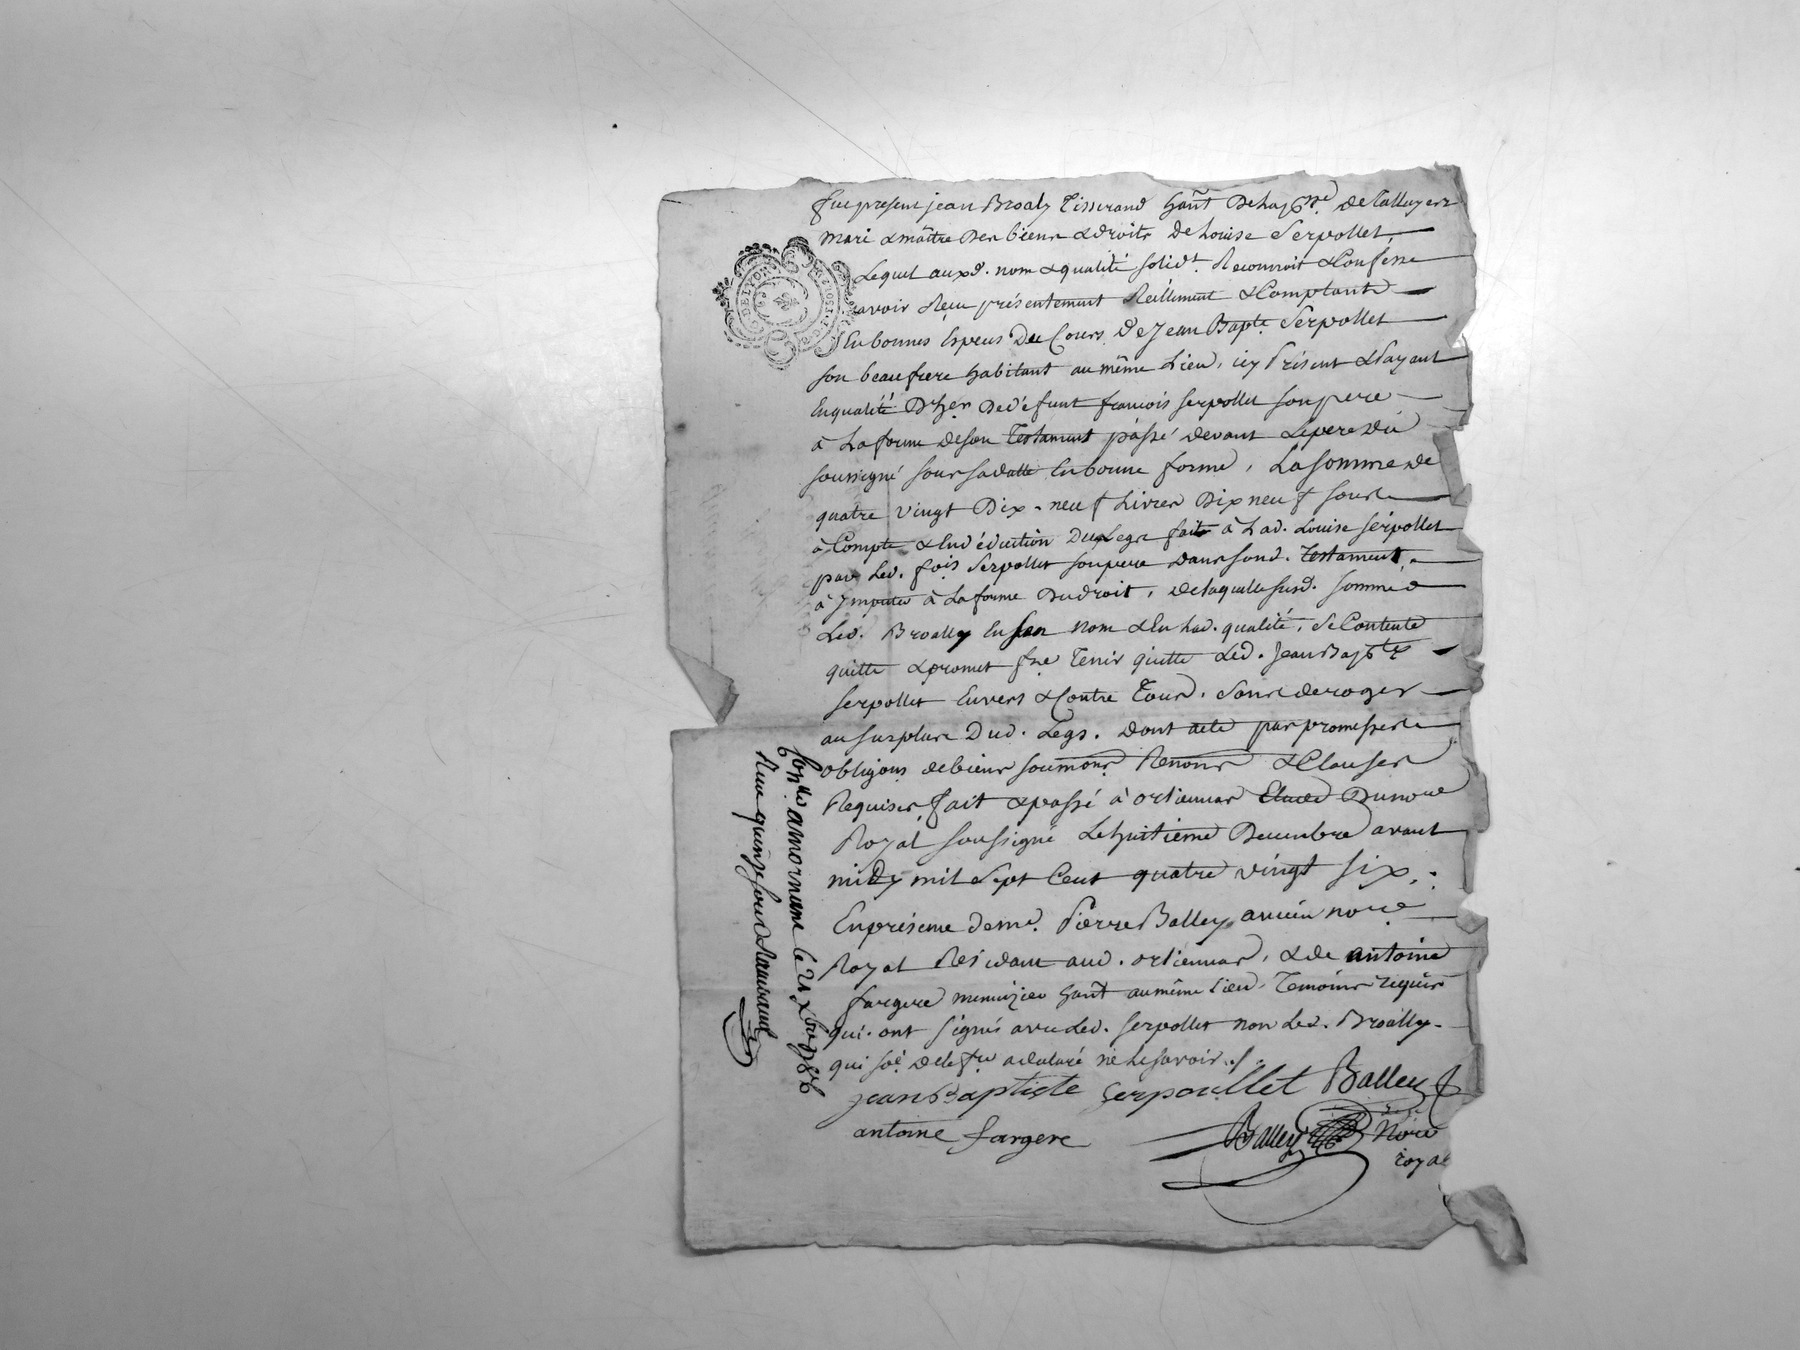 fut present jean Broaly Tisserand hant De la p.sse de Talluyers
mari & maître Des biens & droits de Louise Serpollet,
Lequel auxd. nom & qualité solidt. Reconnoit & Confesse
avoir Reçu présentement Réellement & Comptant
En bonnes Especes Du Cours De Jean Bapte Serpollet
son beaufrere habitant au même Lieu, icy Présent & Payant
En qualité D'her. De défunt francois serpollet son pere
à La forme de son Testament passé devant Le pere du
soussigné sous sa datte En bonne forme, La somme de
quatre vingt Dix-neuf Livres Dix neuf sous
à Compte & En déduction Du Legs fait à Lad. Louise serpollet
par Led. fois Serpollet son pere dans sond. Testament,
à Imputer à La forme Du droit, de laquelle susd. somme
Led. Broally En son nom & En Lad. qualité, Se Contente
quitte & promet fre Tenir quitte Led. Jean Bapte
serpollet Envers & Contre Tous, Sans deroger
au surplus Dud. Legs. Dont acte par promesses
obligons de biens soumons Renons & Clauses
Requises, fait & passé à orlienas Etude Du nore
Royal soussigné Le huitieme Decembre avant
midy mil Sept Cent quatre vingt six,
En présence de me. Pierre Balley ancien nore
Royal Résidant aud. orlienas, & de antoine
fargere menuizier hant au même Lieu, Temoins requis
qui ont signés avec Led. serpollet non Led. Broally
qui sé. de le fre a declaré ne le savoir./.
jean Baptiste serpoullet Balley
antoine fargere Balley Nore
royal
DE LYON
a mornant le 21 Xbre 1786
Reçu quinze sous